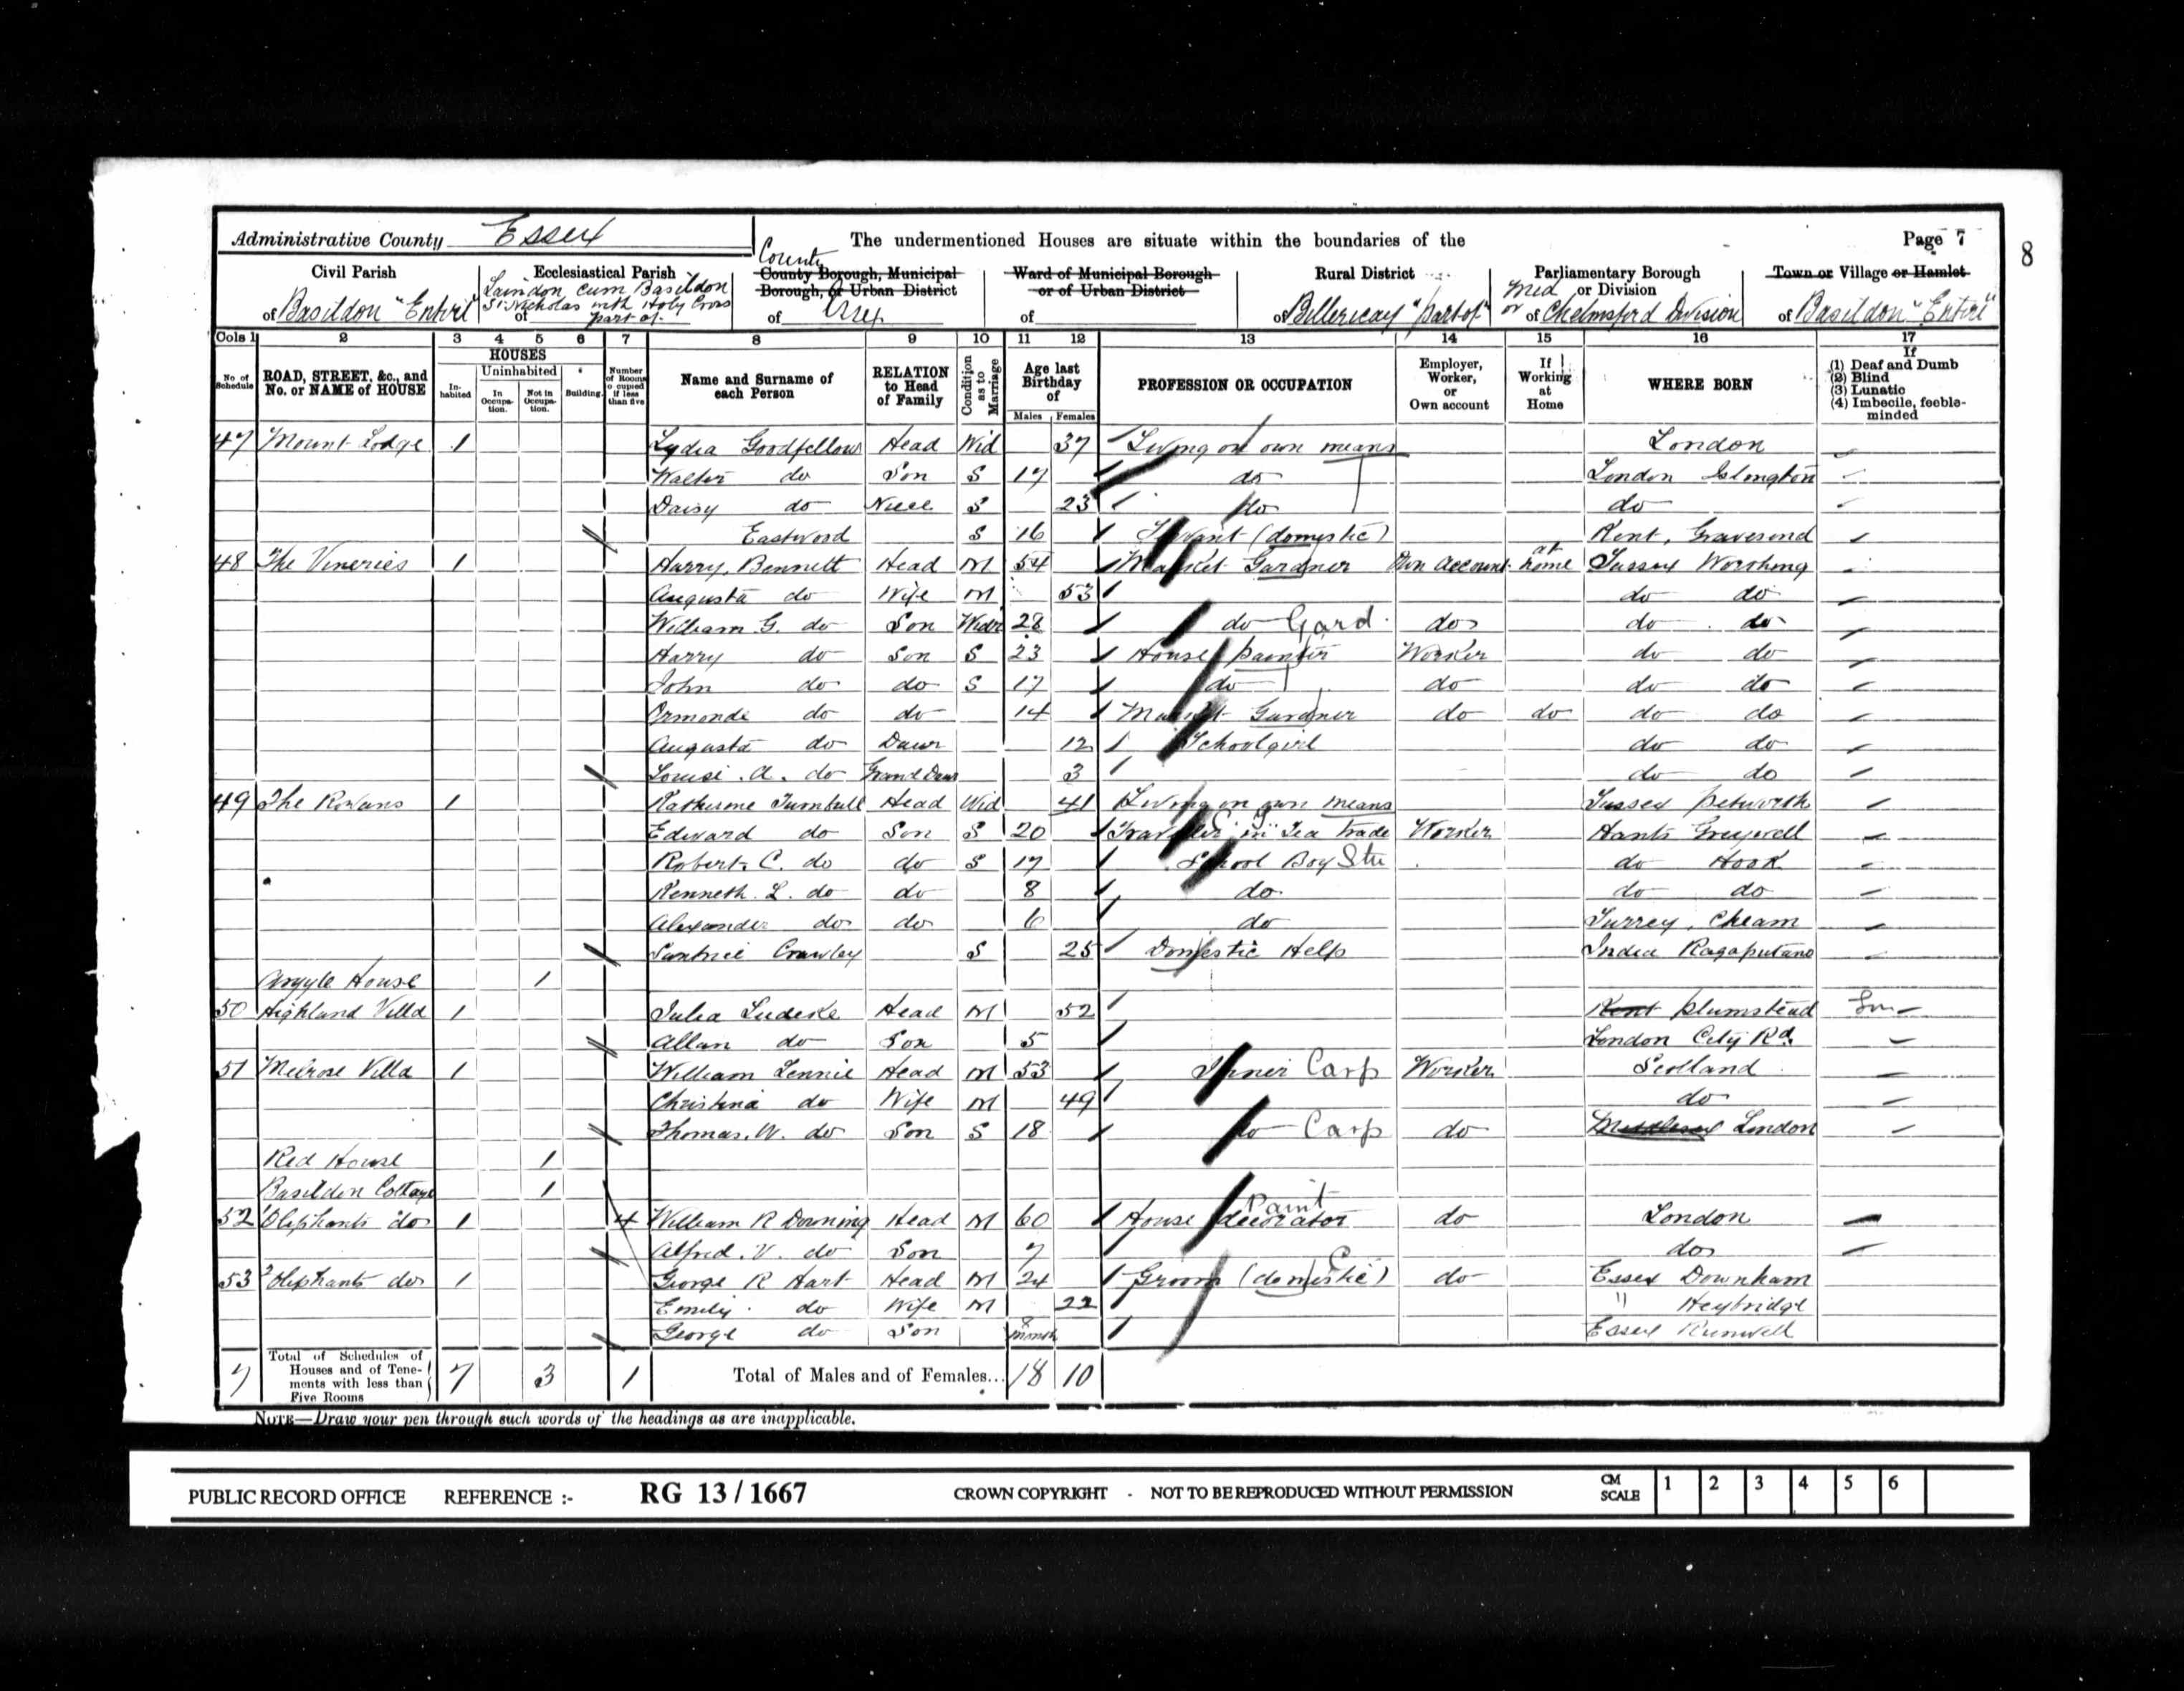 Administrative County Essex The undermentioned Houses are situate within the boundaries of the Page 7
8
Civil Parish
of Basildon "Entire"
Ecclesiastical Parish
Laindon cum Basildon
St Nicholas with Holy Cross
of part of
County
County Borough, Municipal
Borough, or Urban District
of Essex
Ward of Municipal Borough
or of Urban District
of
Rural District
of Billericay "part of"
Parliamentary Borough
Mid or Division
or of Chelmsford Division
Town or Village or Hamlet
of Basildon "Entire"
Cols 1 2 3 4 5 6 7 8 9 10 11 12 13 14 15 16 17
No of Schedule
ROAD, STREET, &c., and No. or NAME of HOUSE
HOUSES
In-habited
Uninhabited
In Occupa-tion.
Not in Occupa-tion.
Building.
Number of Rooms occupied if less than five
Name and Surname of each Person
RELATION to Head of Family
Condition as to Marriage
Age last Birthday of
Males Females
PROFESSION OR OCCUPATION
Employer, Worker, or Own account
If Working at Home
WHERE BORN
If
(1) Deaf and Dumb
(2) Blind
(3) Lunatic
(4) Imbecile, feeble-minded
47 Mount Lodge 1 Lydia Goodfellow Head Wid 37 Living on own means London
Walter do Son S 17 do London Islington
Daisy do Niece S 23 do do
Eastwood S 16 Servant (domestic) Kent, Gravesend
48 The Vineries 1 Harry Bennett Head M 54 Market Gardner Own Account at home Sussex Worthing
Augusta do Wife M 53 do do
William G. do Son Widr 28 do Gard do do do
Harry do Son S 23 House painter Worker do do
John do do S 17 do do do do
Ormonde do do 14 Market Gardner do do do do
Augusta do Daur 12 Schoolgirl do do
Louisi A. do Grand Daur 3 do do
49 The Rowans 1 Katherine Turnbull Head Wid 41 Living on own means Sussex Petworth
Edward do Son S 20 Traveller in Tea trade Worker Hants Greywell
Robert C. do do S 17 School Boy Stu do Hook
Kenneth L. do do 8 do do do
Alexander do do 6 do Surrey, Cheam
Crawley S 25 Domestic Help India
Argyle House 1
50 Highland Villa 1 Julia Ludeke Head M 52 Kent Plumstead
Allan do Son 5 London City Rd
51 Melrose Villa 1 William Lennie Head M 53 Joiner Carp Worker Scotland
Christina do Wife M 49 do
Thomas W. do Son S 18 do Carp do Middlesex London
Red House 1
Basildon Cottage 1
52 1 Oliphants do 1 4 William R Downing Head M 60 House decorator Paint do London
Alfred V. do Son 7 do
53 2 Oliphants do 1 George R Hart Head M 24 Groom (domestic) do Essex Downham
Emily do Wife M 22 " Heybridge
George do Son 8 month Essex Runwell
7 Total of Schedules of Houses and of Tene-ments with less than Five Rooms 7 3 1 Total of Males and of Females... 18 10
NOTE—Draw your pen through such words of the headings as are inapplicable.
PUBLIC RECORD OFFICE REFERENCE :- RG 13 / 1667 CROWN COPYRIGHT - NOT TO BE REPRODUCED WITHOUT PERMISSION CM SCALE 1 2 3 4 5 6